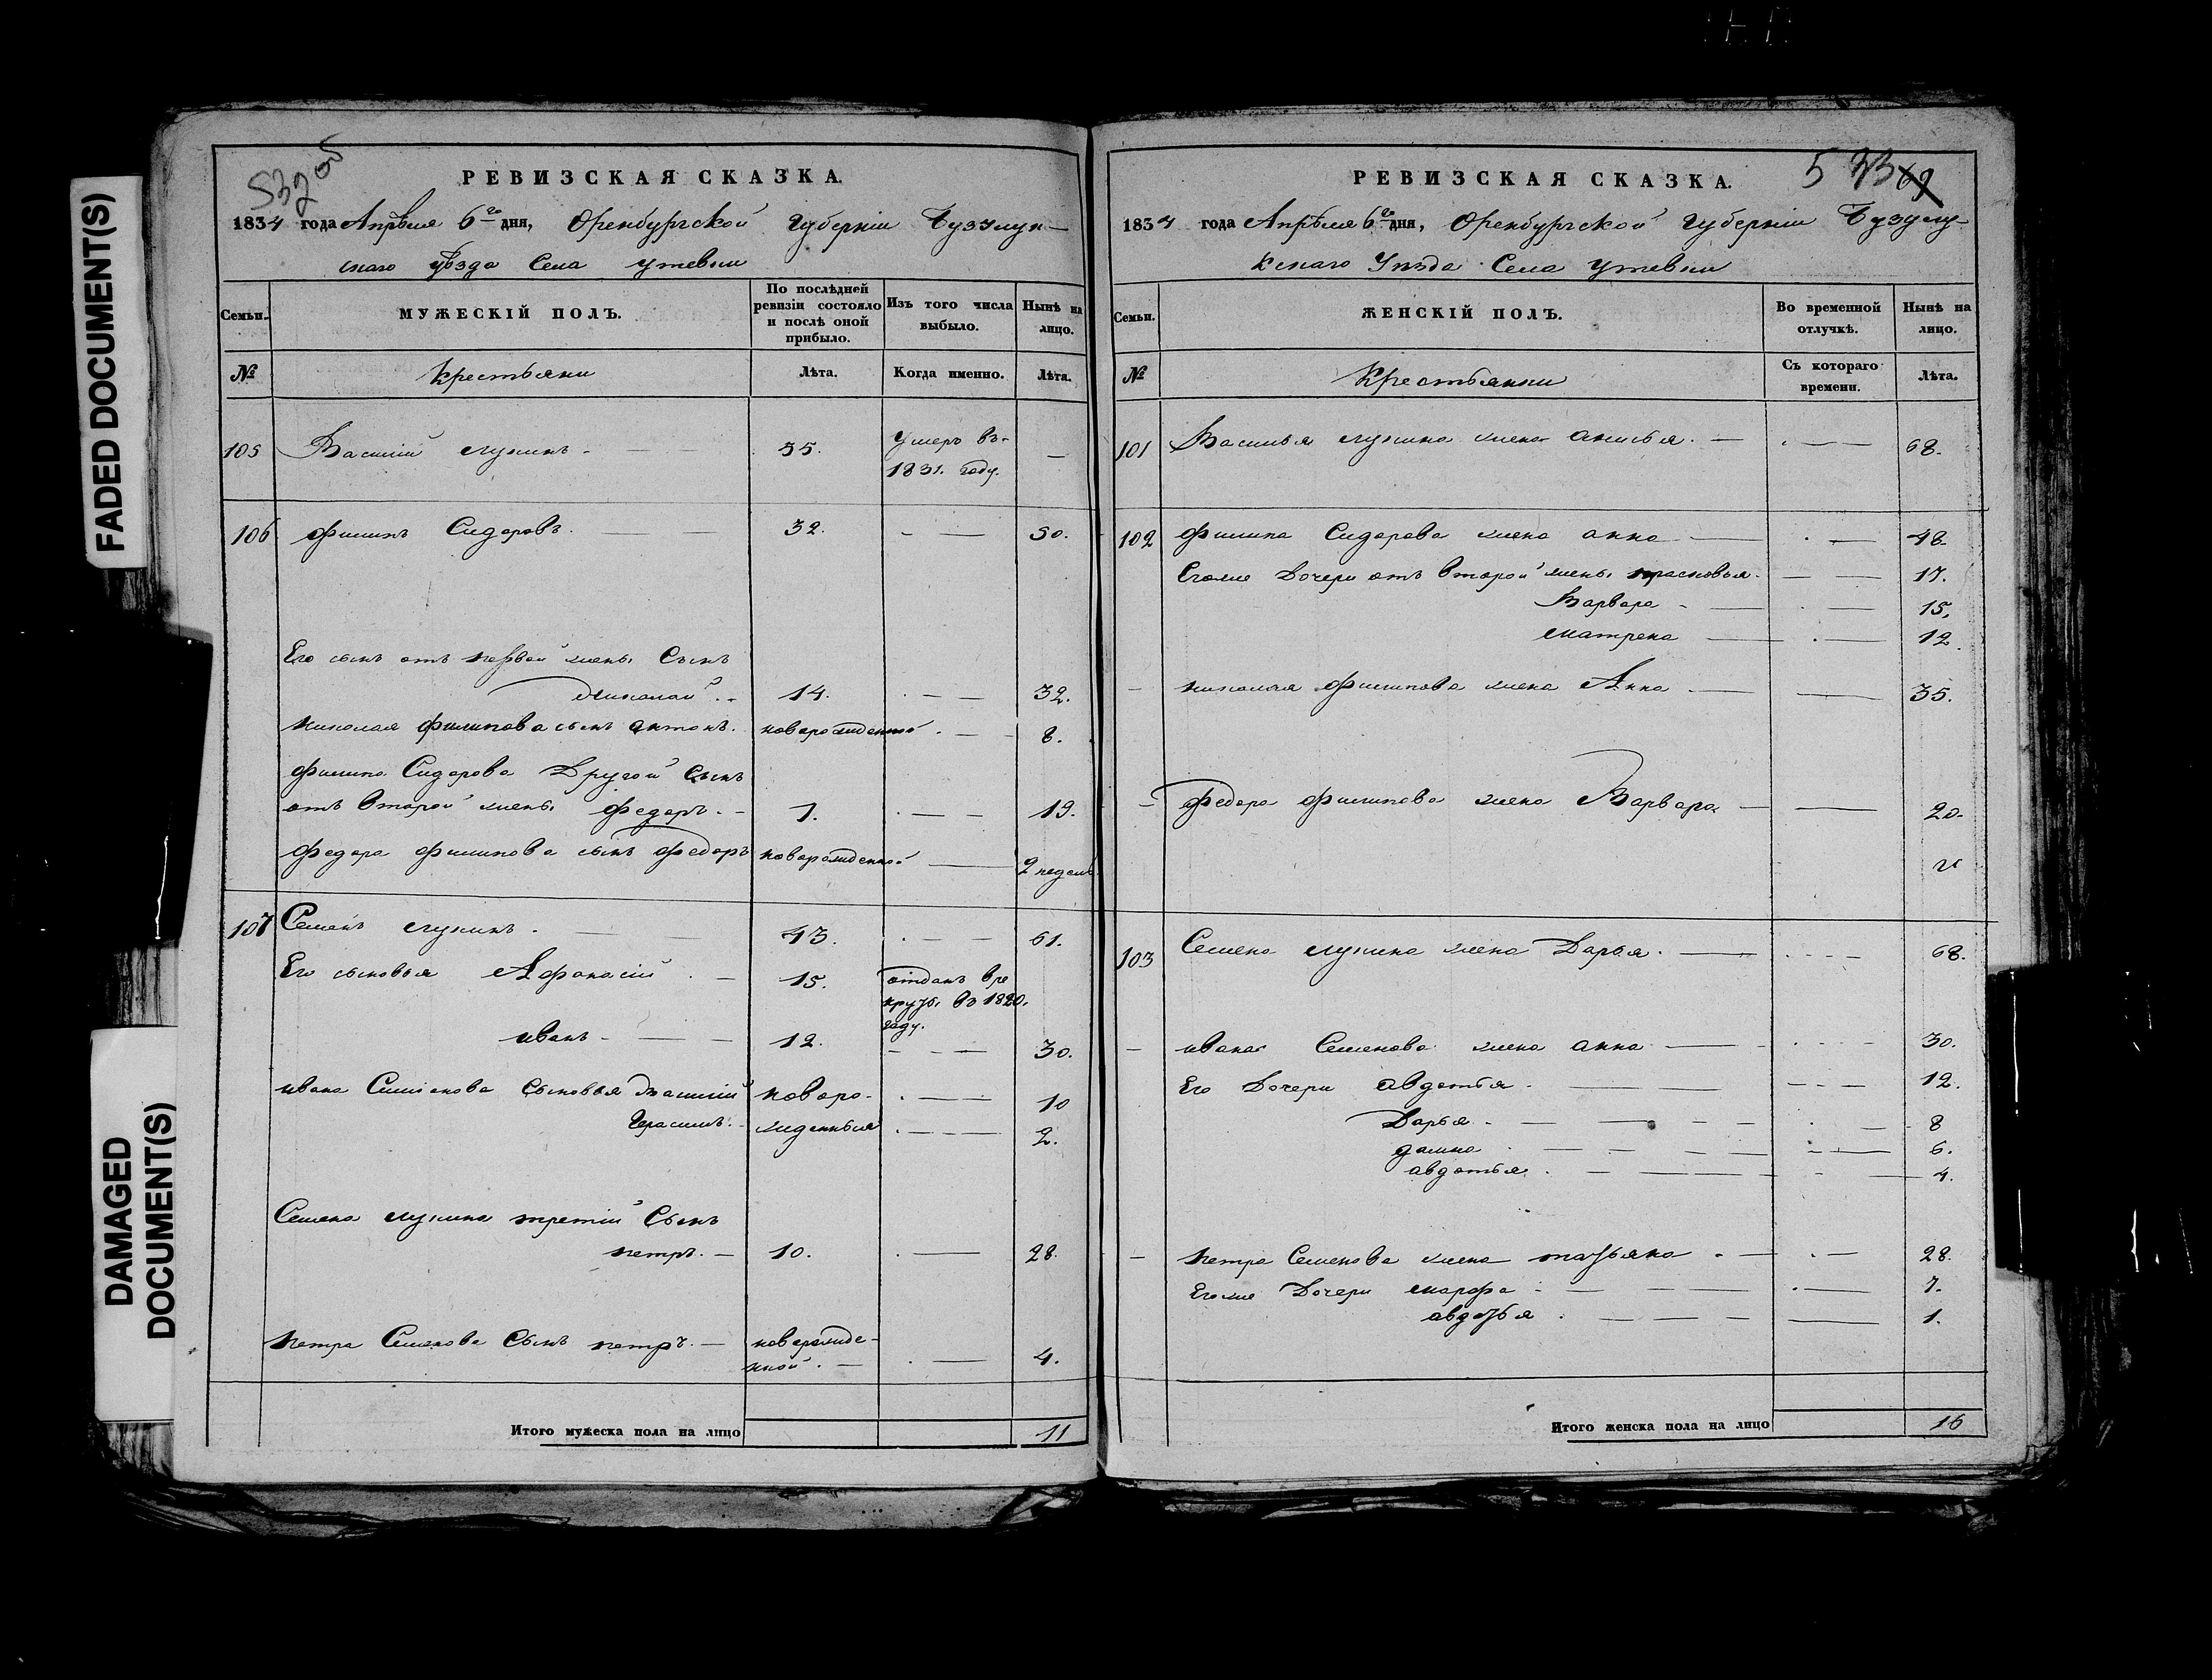 FADED DOCUMENT(S)
DAMAGED
DOCUMENT(S)
532 об
РЕВИЗСКАЯ СКАЗКА.
1834 года Апреля 6го дня, Оренбургской Губернии Бузулук-
скаго уѣзда Села Утевки
Семьи. МУЖЕСКІЙ ПОЛЪ. По послѣдней ревизіи состояло и послѣ оной прибыло. Изъ того числа выбыло. Нынѣ на лицо.
№ Крестьяни Лѣта. Когда именно. Лѣта.
105 Василій лукинъ. 55. умеръ въ
1831. году.
106 филипъ Сидоровъ. 32. 50.
Его сынъ отъ первой жены Сынъ
Николай. 14. 32.
николая филипова сынъ антонъ. новорожденной 8.
филипа Сидорова Другой Сынъ
отъ второй жены федоръ. 1. 19.
федора филипова сынъ федоръ новорожденной 2 недель
107 Семенъ лукинъ. 43. 61.
Его сыновья Афонасій 15. отданъ вре
круты въ 1820.
году.
иванъ 12. 30.
ивана Симионова Сыновья Василий новоро- 10
Герасимъ. жденныя 2.
Семена лукина третий Сынъ
петръ. 10. 28.
петра Семенова Сынъ петръ. новорожде-
нной. 4.
Итого мужеска пола на лицо 11
533 69
РЕВИЗСКАЯ СКАЗКА.
1834 года Апреля 6го дня, Оренбургской Губернии Бузулу-
кскаго Уѣзда Села Утевки
Семьи. ЖЕНСКІЙ ПОЛЪ. Во временной отлучкѣ. Нынѣ на лицо.
№ Крестьянки Съ котораго времени. Лѣта.
101 Василья лукина жена анисья. 68.
102 филипа Сидорова жена анна 48.
Егоже Дочери отъ второй жены прасковья. 17.
Варвара 15.
матрена 12.
николая филипова жена Анна 35.
федора филипова жена Варвара 20.
103 Семена лукина жена Дарья. 68.
ивана Семенова жена анна 30.
Его Дочери авдотья. 12.
Дарья. 8
домна 6.
авдотья. 4.
петра Семенова жена татьяна 28.
Егоже Дочери марфа 7.
авдотья 1.
Итого женска пола на лицо 16